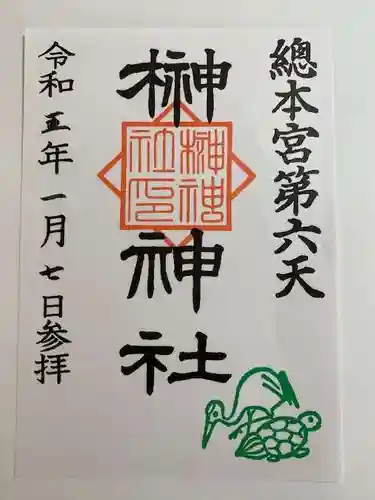 總本宮第六天
榊神社
榊神社印
令和五年一月七日参拝